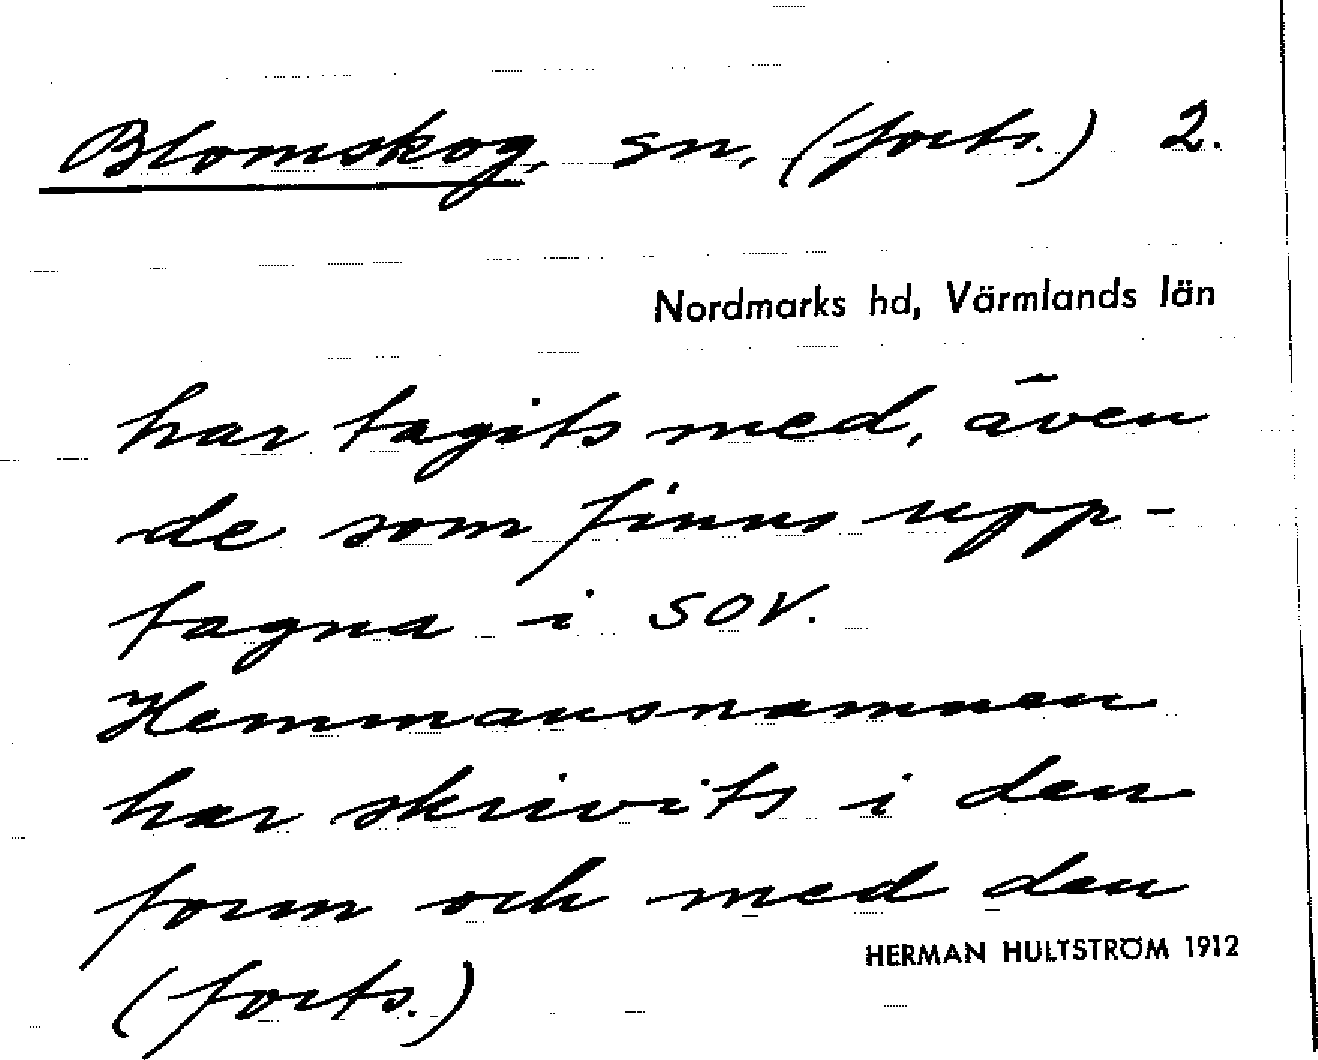 Blomskog, sn, (forts.) 2.
Nordmarks hd, Värmlands län
har tagits med, även
de som finns upp-
tagna i SOV.
Hemmansnamnen
har skrivits i den
form och med den
HERMAN HULTSTRÖM 1912
(forts.)